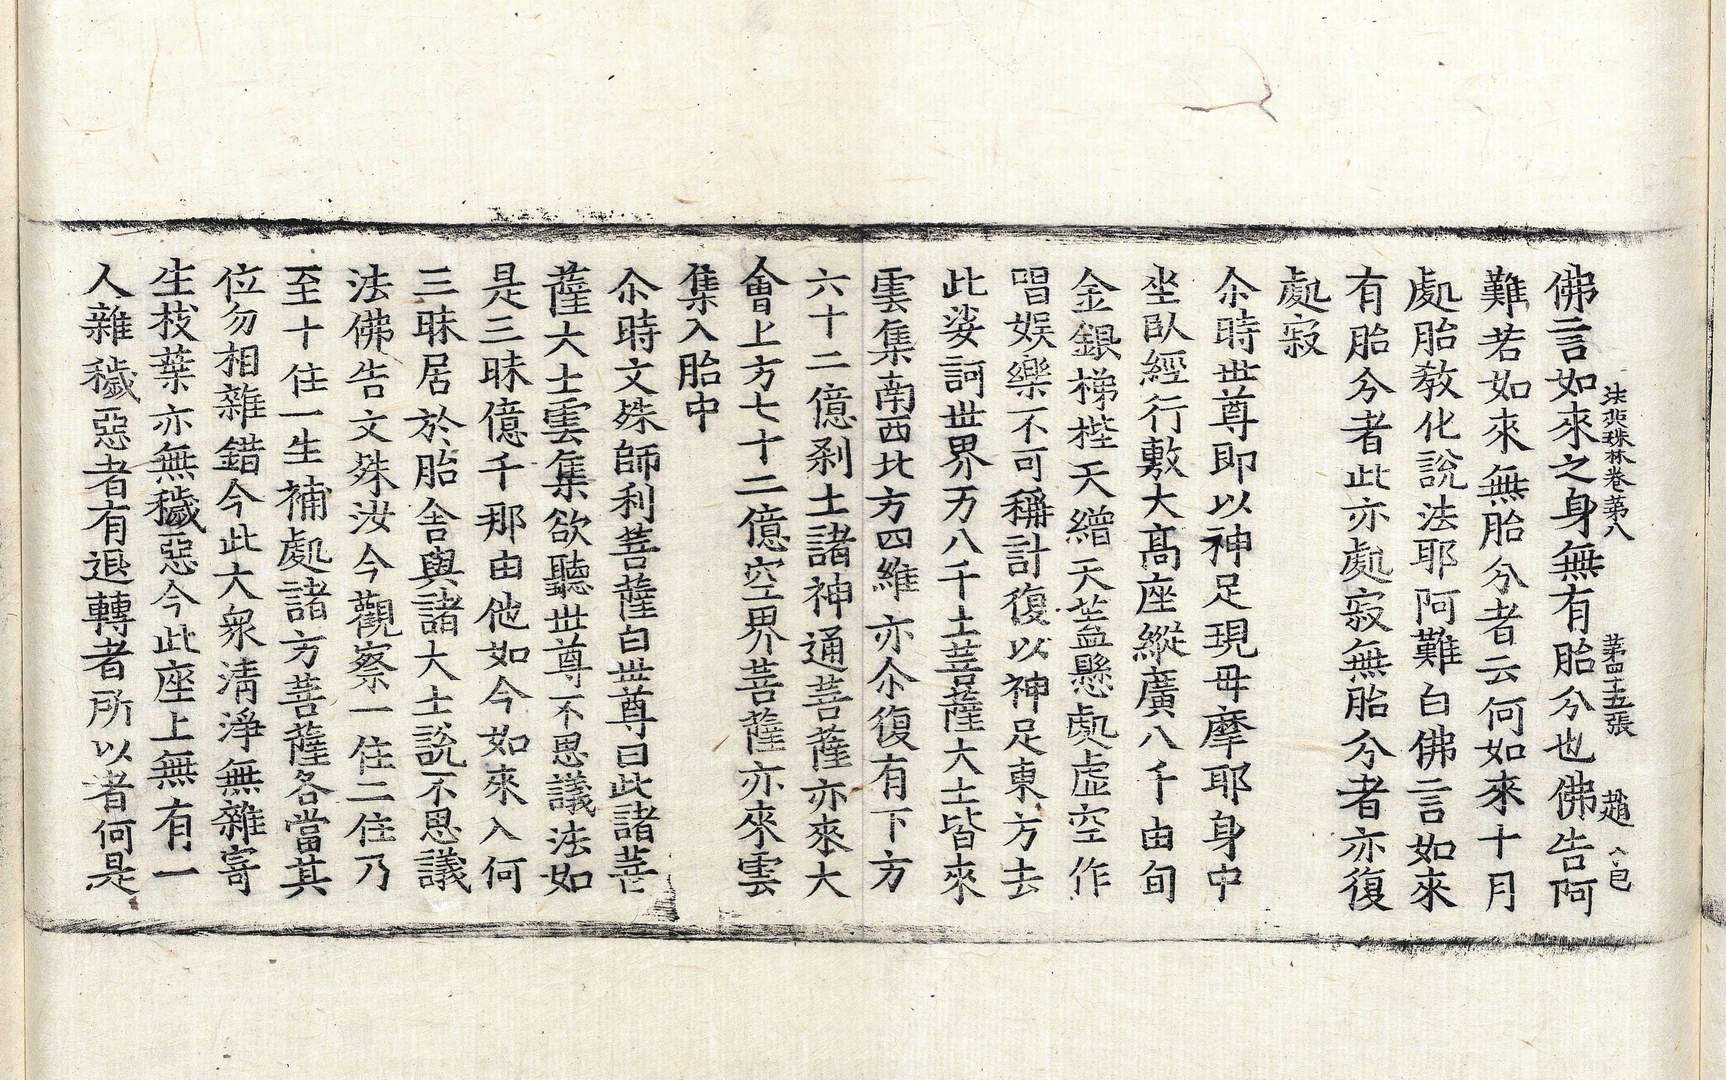 法苑珠林卷第八 第四十五張 趙 八 㠯
佛言如來之身無有胎分也佛告阿
難若如來無胎分者云何如來十月
處胎敎化說法耶阿難白佛言如來
有胎分者此亦處寂無胎分者亦復
處寂
尒時世尊即以神足現毋摩耶身中
坐臥經行敷大髙座縱廣八千由旬
金銀梯桎天繒天盖懸處虛空作
唱娛樂不可稱計復以神足東方去
此娑訶世界万八千土菩薩大士皆來
雲集南西北方四維亦尒復有下方
六十二億刹土諸神通菩薩亦來大
會上方七十二億空界菩薩亦來雲
集入胎中
尒時文殊師利菩薩白世尊曰此諸菩
薩大士雲集欲聽世尊不思議法如
是三昧億千那由他如今如來入何
三昧居於胎舍與諸大士說不思議
法佛告文殊汝今觀察一住二住乃
至十住一生補處諸方菩薩各當其
位勿相雜錯今此大衆清淨無雜寄
生枝葉亦無穢惡今此座上無有一
人雜穢惡者有退轉者所以者何是